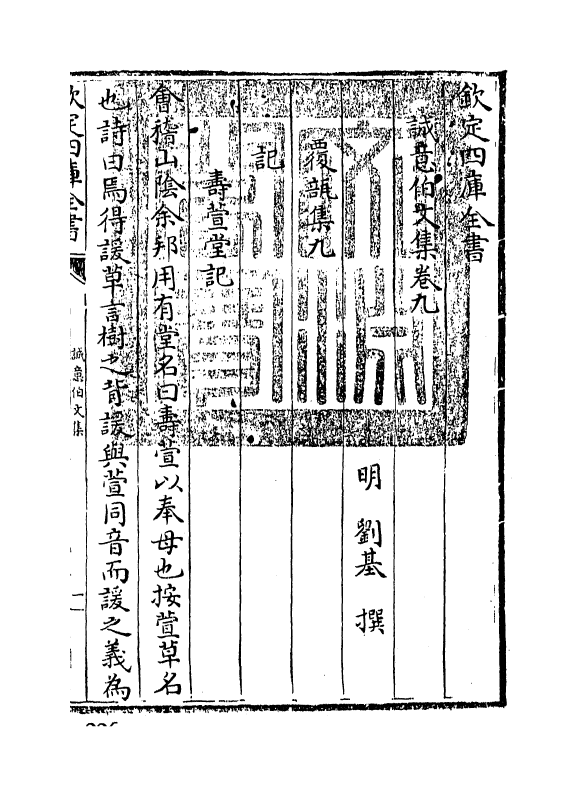 欽定四庫全書
誠意伯文集卷九
明 劉基 撰
覆瓿集九
記
壽萱堂記
會稽山陰余邦用有堂名曰壽萱以奉母也按萱草名
也詩曰焉得諼草言樹之背諼與萱同音而諼之義為
欽定四庫全書
誠意伯文集
一